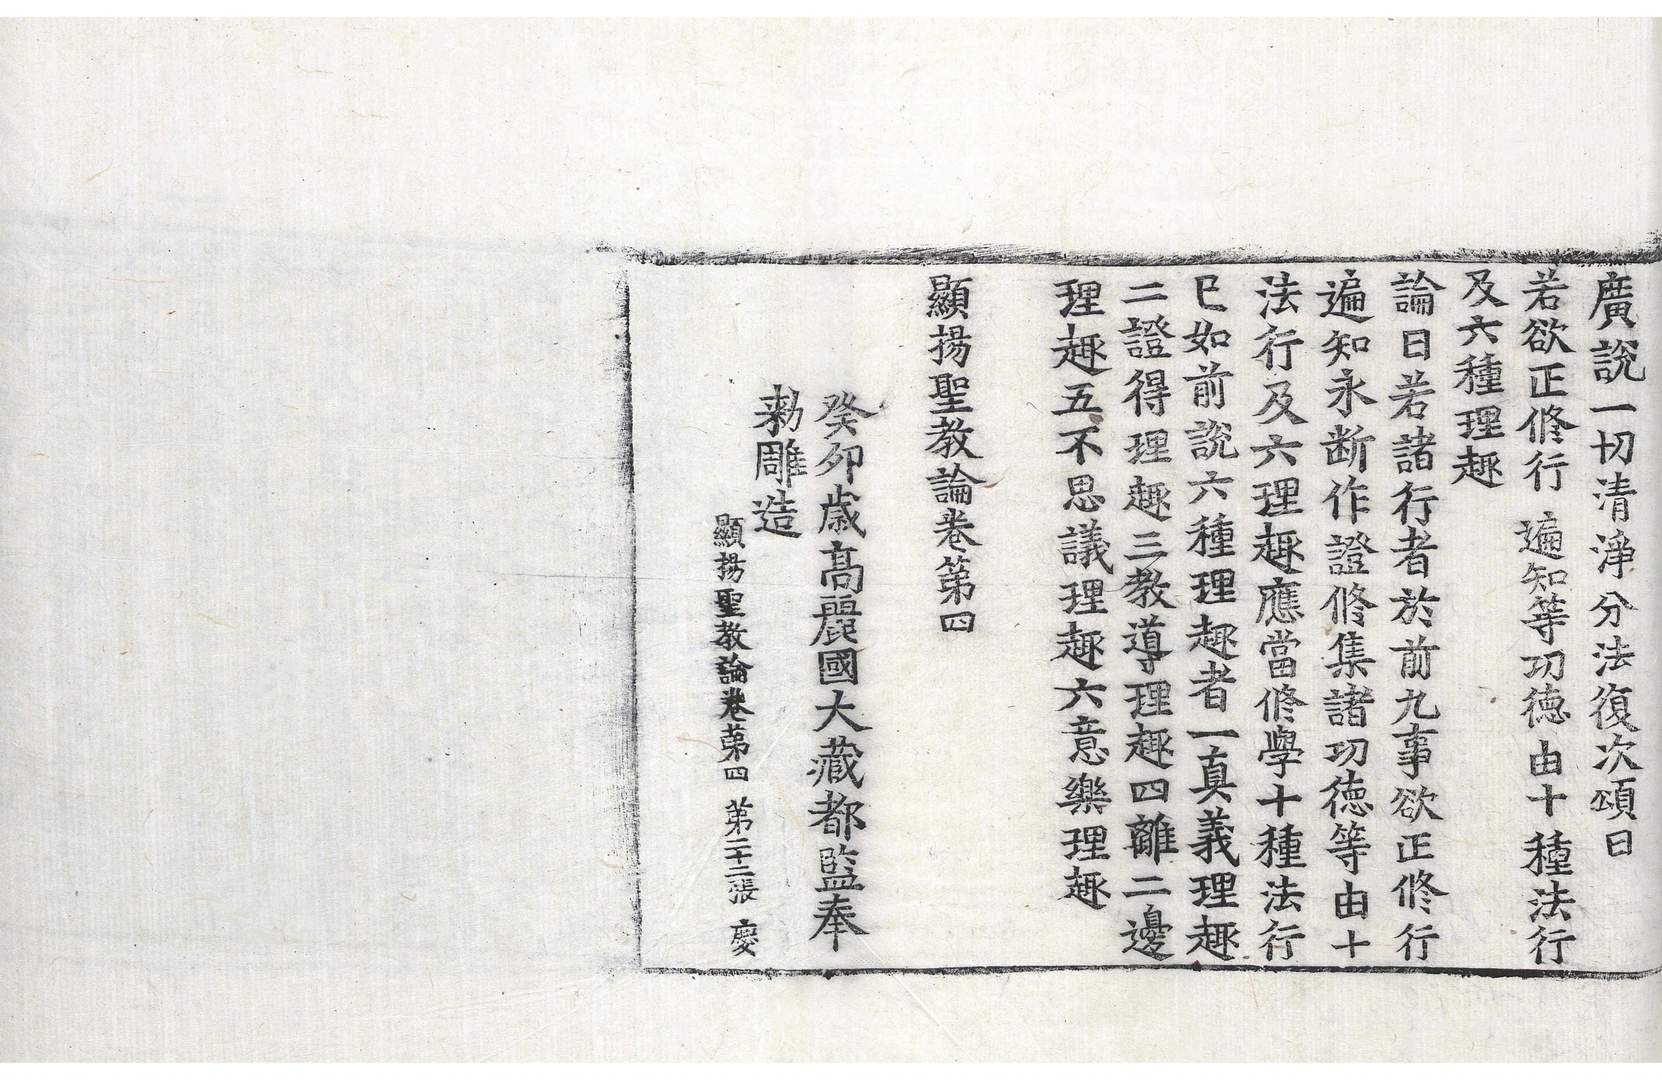 廣說一切清淨分法復次頌曰
若欲正修行　遍知等功德　由十種法行
及六種理趣
論曰若諸行者於前九事欲正修行
遍知永断作證修集諸功德等由十
法行及六理趣應當修學十種法行
已如前說六種理趣者一真義理趣
二證得理趣三教導理趣四離二邊
理趣五不思議理趣六意樂理趣
顯揚聖教論卷第四
癸卯歲高麗國大藏都監奉
勅雕造
顯揚聖教論卷第四　第二十二張　慶